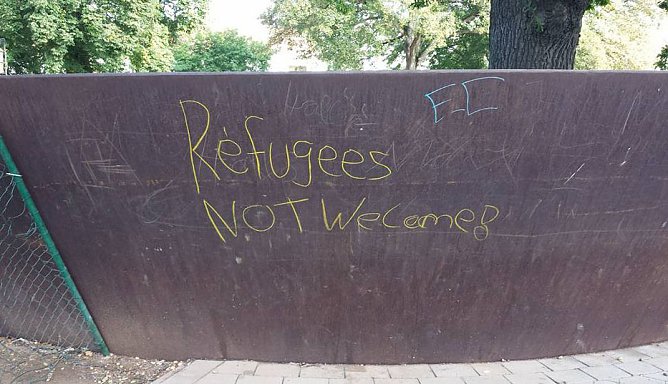 Refugees
NOT Welcome!